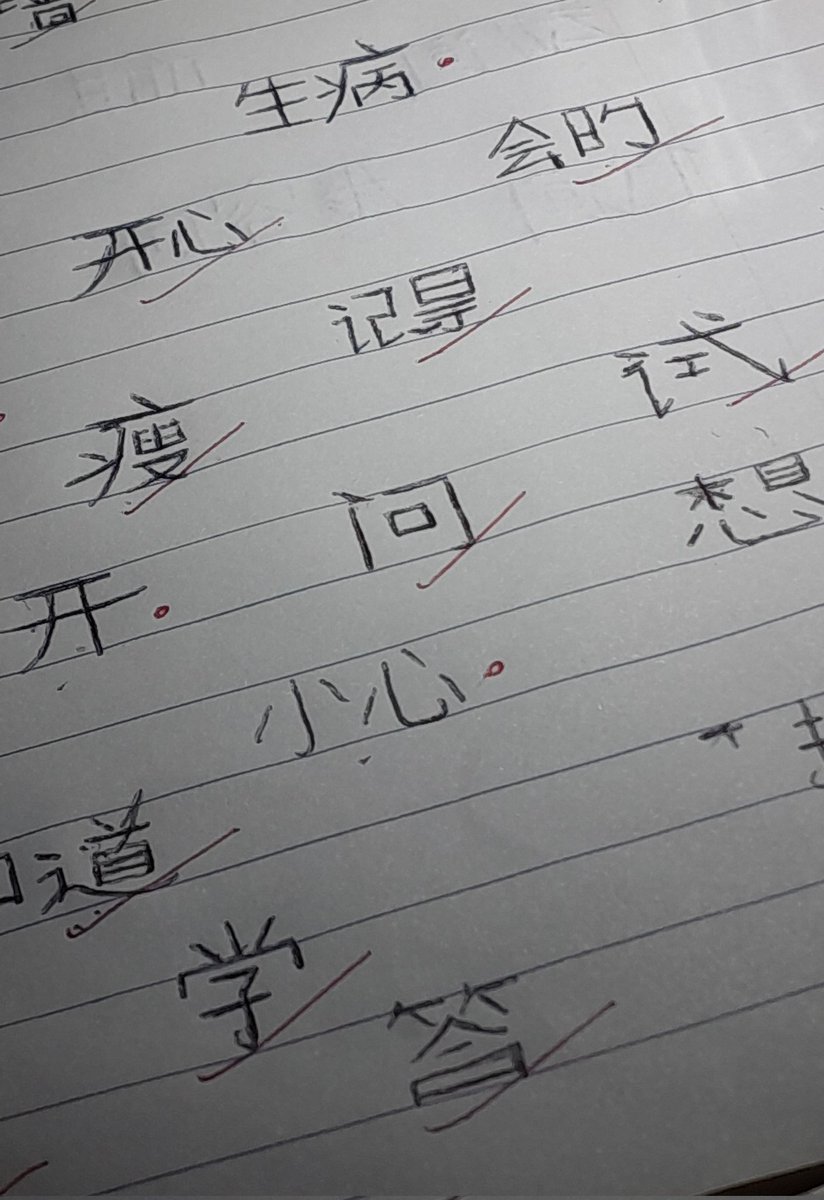 生病
会的
开心
记
试
瘦
问
想
开
小心
道
学
答